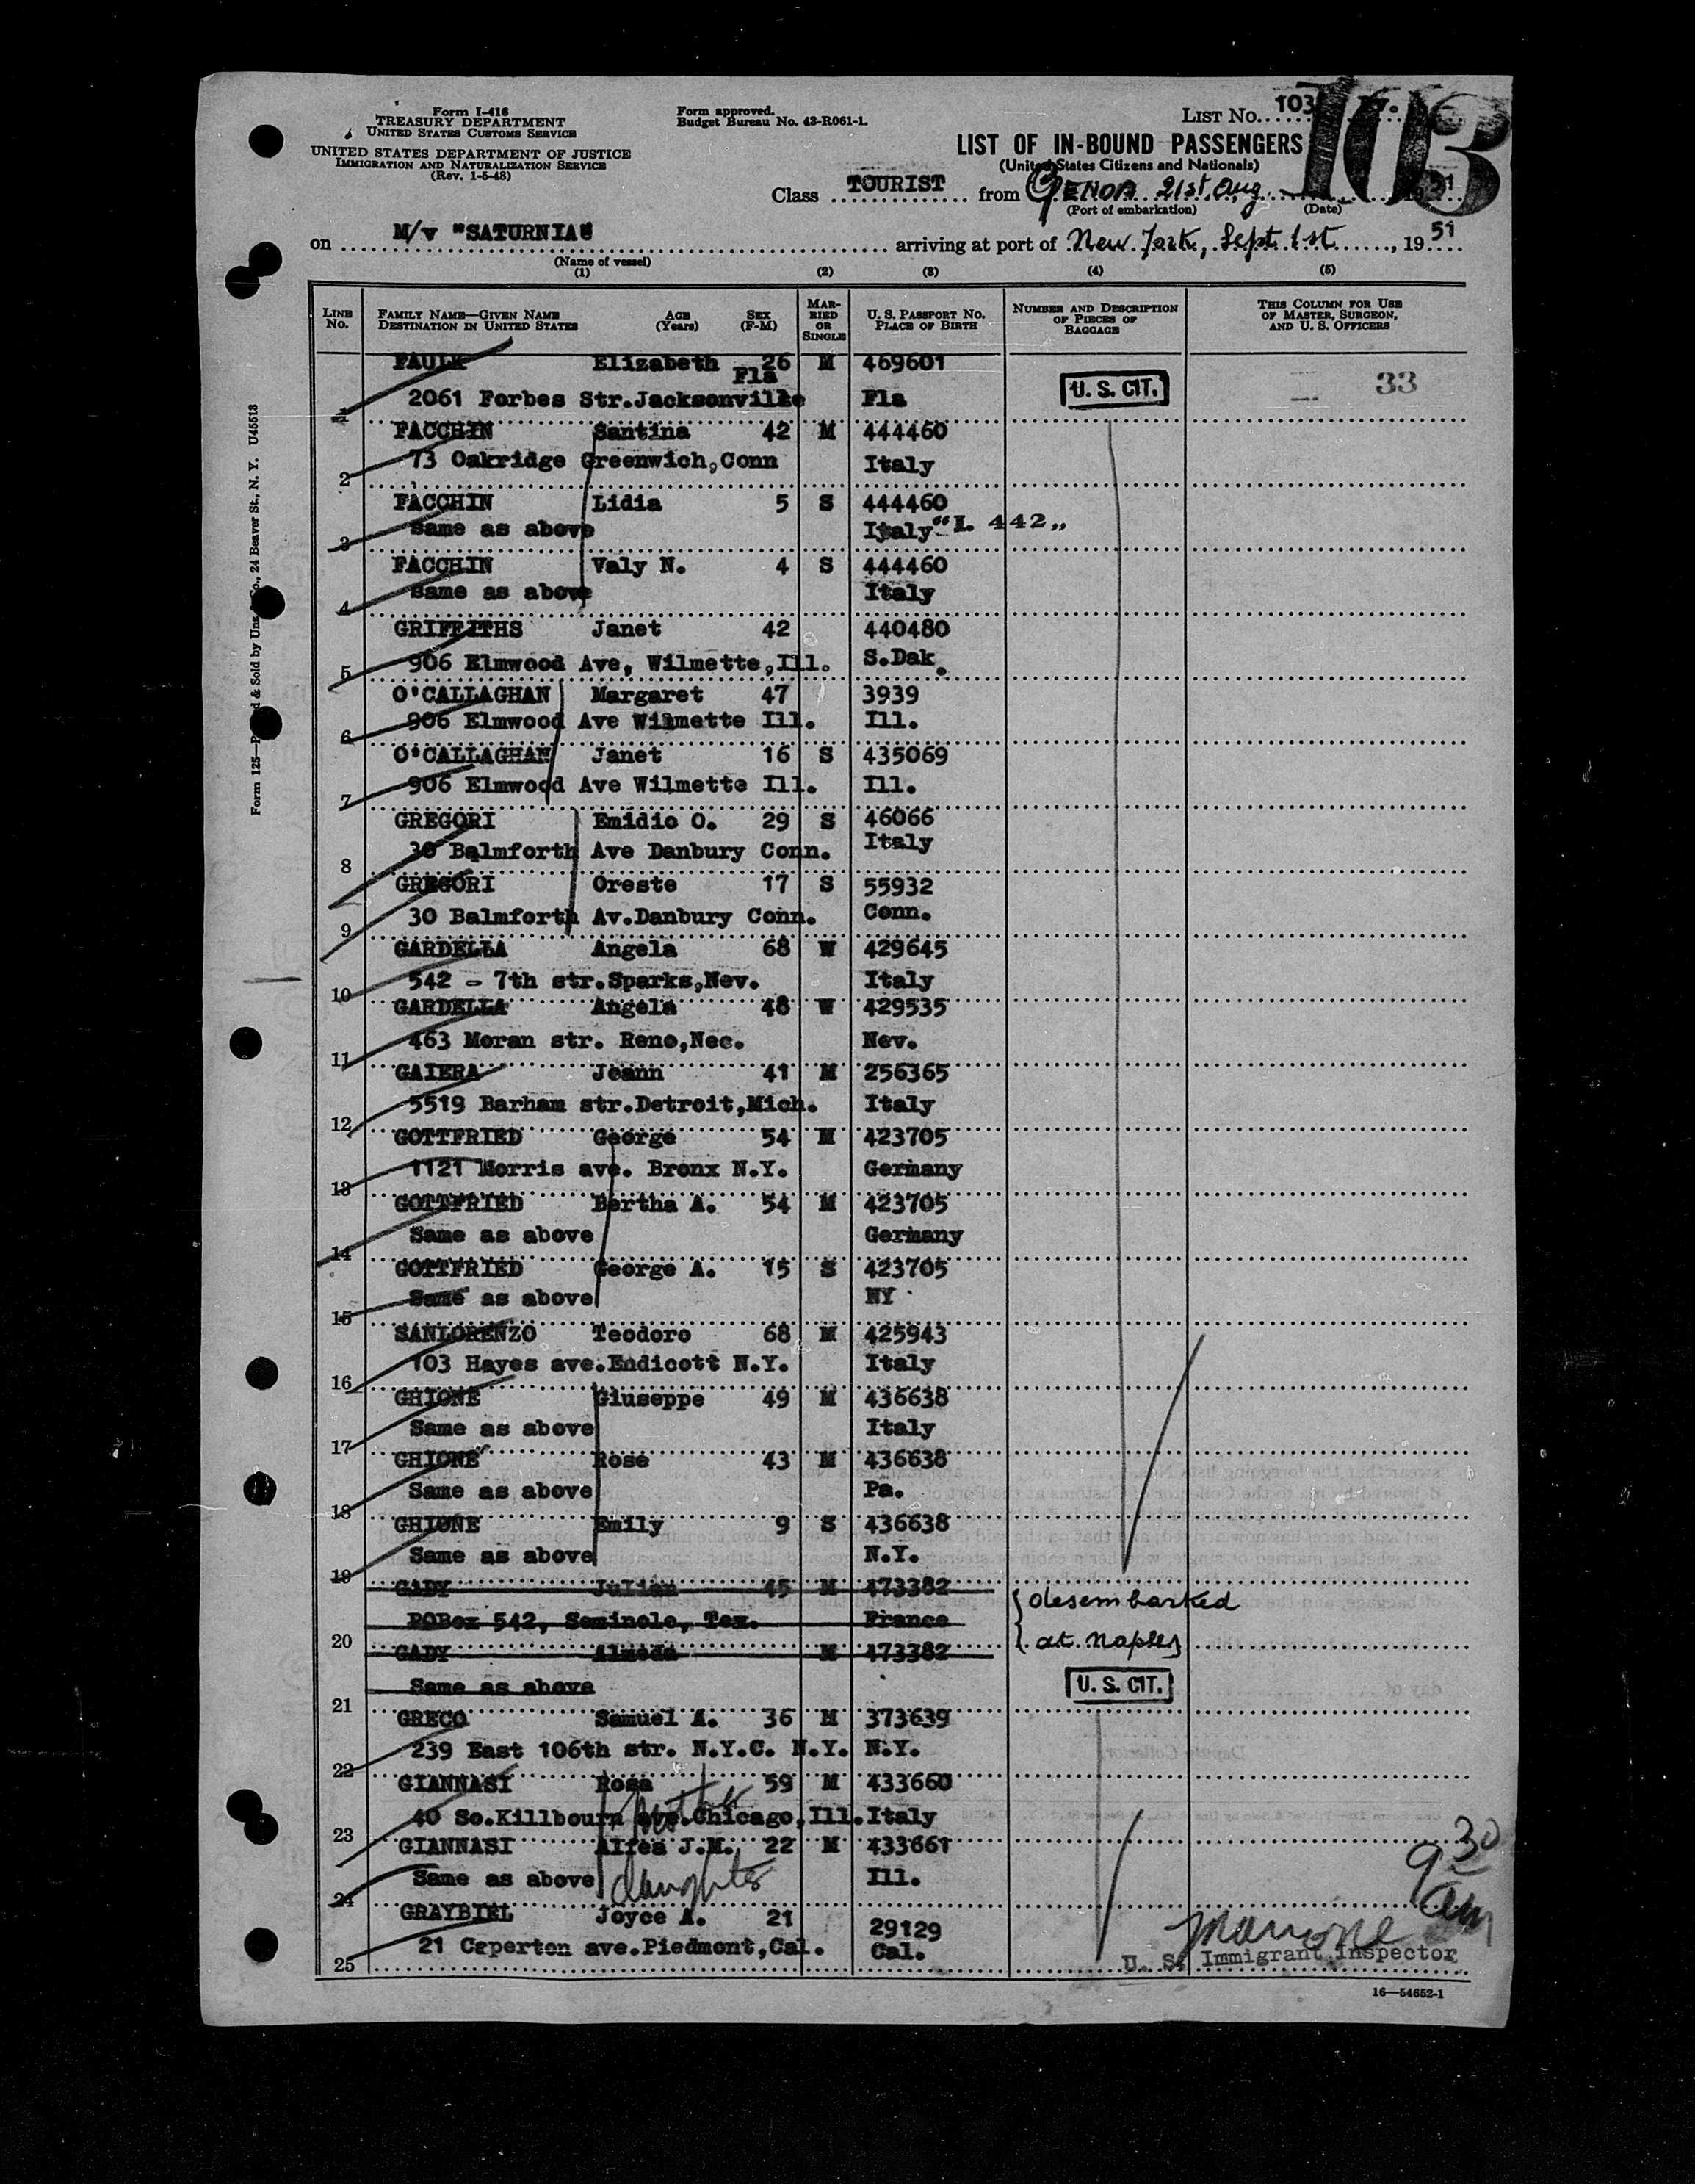 Form I-416
TREASURY DEPARTMENT
UNITED STATES CUSTOMS SERVICE
UNITED STATES DEPARTMENT OF JUSTICE
IMMIGRATION AND NATURALIZATION SERVICE
(Rev. 1-5-48)
Form approved.
Budget Bureau No. 43-R061-1.
LIST No. 103
103
LIST OF IN-BOUND PASSENGERS
(United States Citizens and Nationals)
Class TOURIST from GENOA 21st Aug 51
(Port of embarkation) (Date)
on M/v "SATURNIA" arriving at port of New York, Sept. 1st, 1951
(Name of vessel)
(1) (2) (3) (4) (5)
LINE No. FAMILY NAME—GIVEN NAME DESTINATION IN UNITED STATES AGE (Years) SEX (F-M) MARRIED OR SINGLE U. S. PASSPORT NO. PLACE OF BIRTH NUMBER AND DESCRIPTION OF PIECES OF BAGGAGE THIS COLUMN FOR USE OF MASTER, SURGEON, AND U. S. OFFICERS
FAULK Elizabeth 26 M 469601
Fla
1 2061 Forbes Str.Jacksonville Fla U. S. CIT. 33
FACCHIN Santina 42 M 444460
2 73 Oakridge Greenwich,Conn Italy
FACCHIN Lidia 5 S 444460
3 Same as above Italy "I. 442"
FACCHIN Valy N. 4 S 444460
4 Same as above Italy
GRIFFITHS Janet 42 440480
5 906 Elmwood Ave, Wilmette,Ill. S.Dak.
O'CALLAGHAN Margaret 47 3939
6 906 Elmwood Ave Wilmette Ill. Ill.
O'CALLAGHAN Janet 16 S 435069
7 906 Elmwood Ave Wilmette Ill. Ill.
GREGORI Emidio O. 29 S 46066
8 30 Balmforth Ave Danbury Conn. Italy
GREGORI Oreste 17 S 55932
9 30 Balmforth Av.Danbury Conn. Conn.
GARDELLA Angela 68 W 429645
10 542 - 7th str.Sparks,Nev. Italy
GARDELLA Angela 48 W 429535
11 463 Moran str. Reno,Nec. Nev.
GAIERA Joann 41 M 256365
12 5519 Barham str.Detroit,Mich. Italy
GOTTFRIED George 54 M 423705
13 1121 Morris ave. Bronx N.Y. Germany
GOTTFRIED Bertha A. 54 M 423705
14 Same as above Germany
GOTTFRIED George A. 15 S 423705
15 Same as above NY
SANLORENZO Teodoro 68 M 425943
16 103 Hayes ave.Endicott N.Y. Italy
GHIONE Giuseppe 49 M 436638
17 Same as above Italy
GHIONE Rose 43 M 436638
18 Same as above Pa.
GHIONE Emily 9 S 436638
19 Same as above N.Y.
GADY Julian 45 M 473382
20 POBox 542, Seminole, Tex. France desembarked
GADY Almeda M 473382 at Naples
21 Same as above U. S. CIT.
GRECO Samuel A. 36 M 373639
22 239 East 106th str. N.Y.C. N.Y. N.Y.
GIANNASI Rosa 59 M 433660
mother
23 40 So.Killbourn ave.Chicago,Ill. Italy
GIANNASI Alfea J.M. 22 M 433661
24 Same as above daughter Ill.
GRAYBIEL Joyce A. 21 29129
25 21 Caperton ave.Piedmont,Cal. Cal.
9 30 am
U. S. Immigrant Inspector
16—54652-1